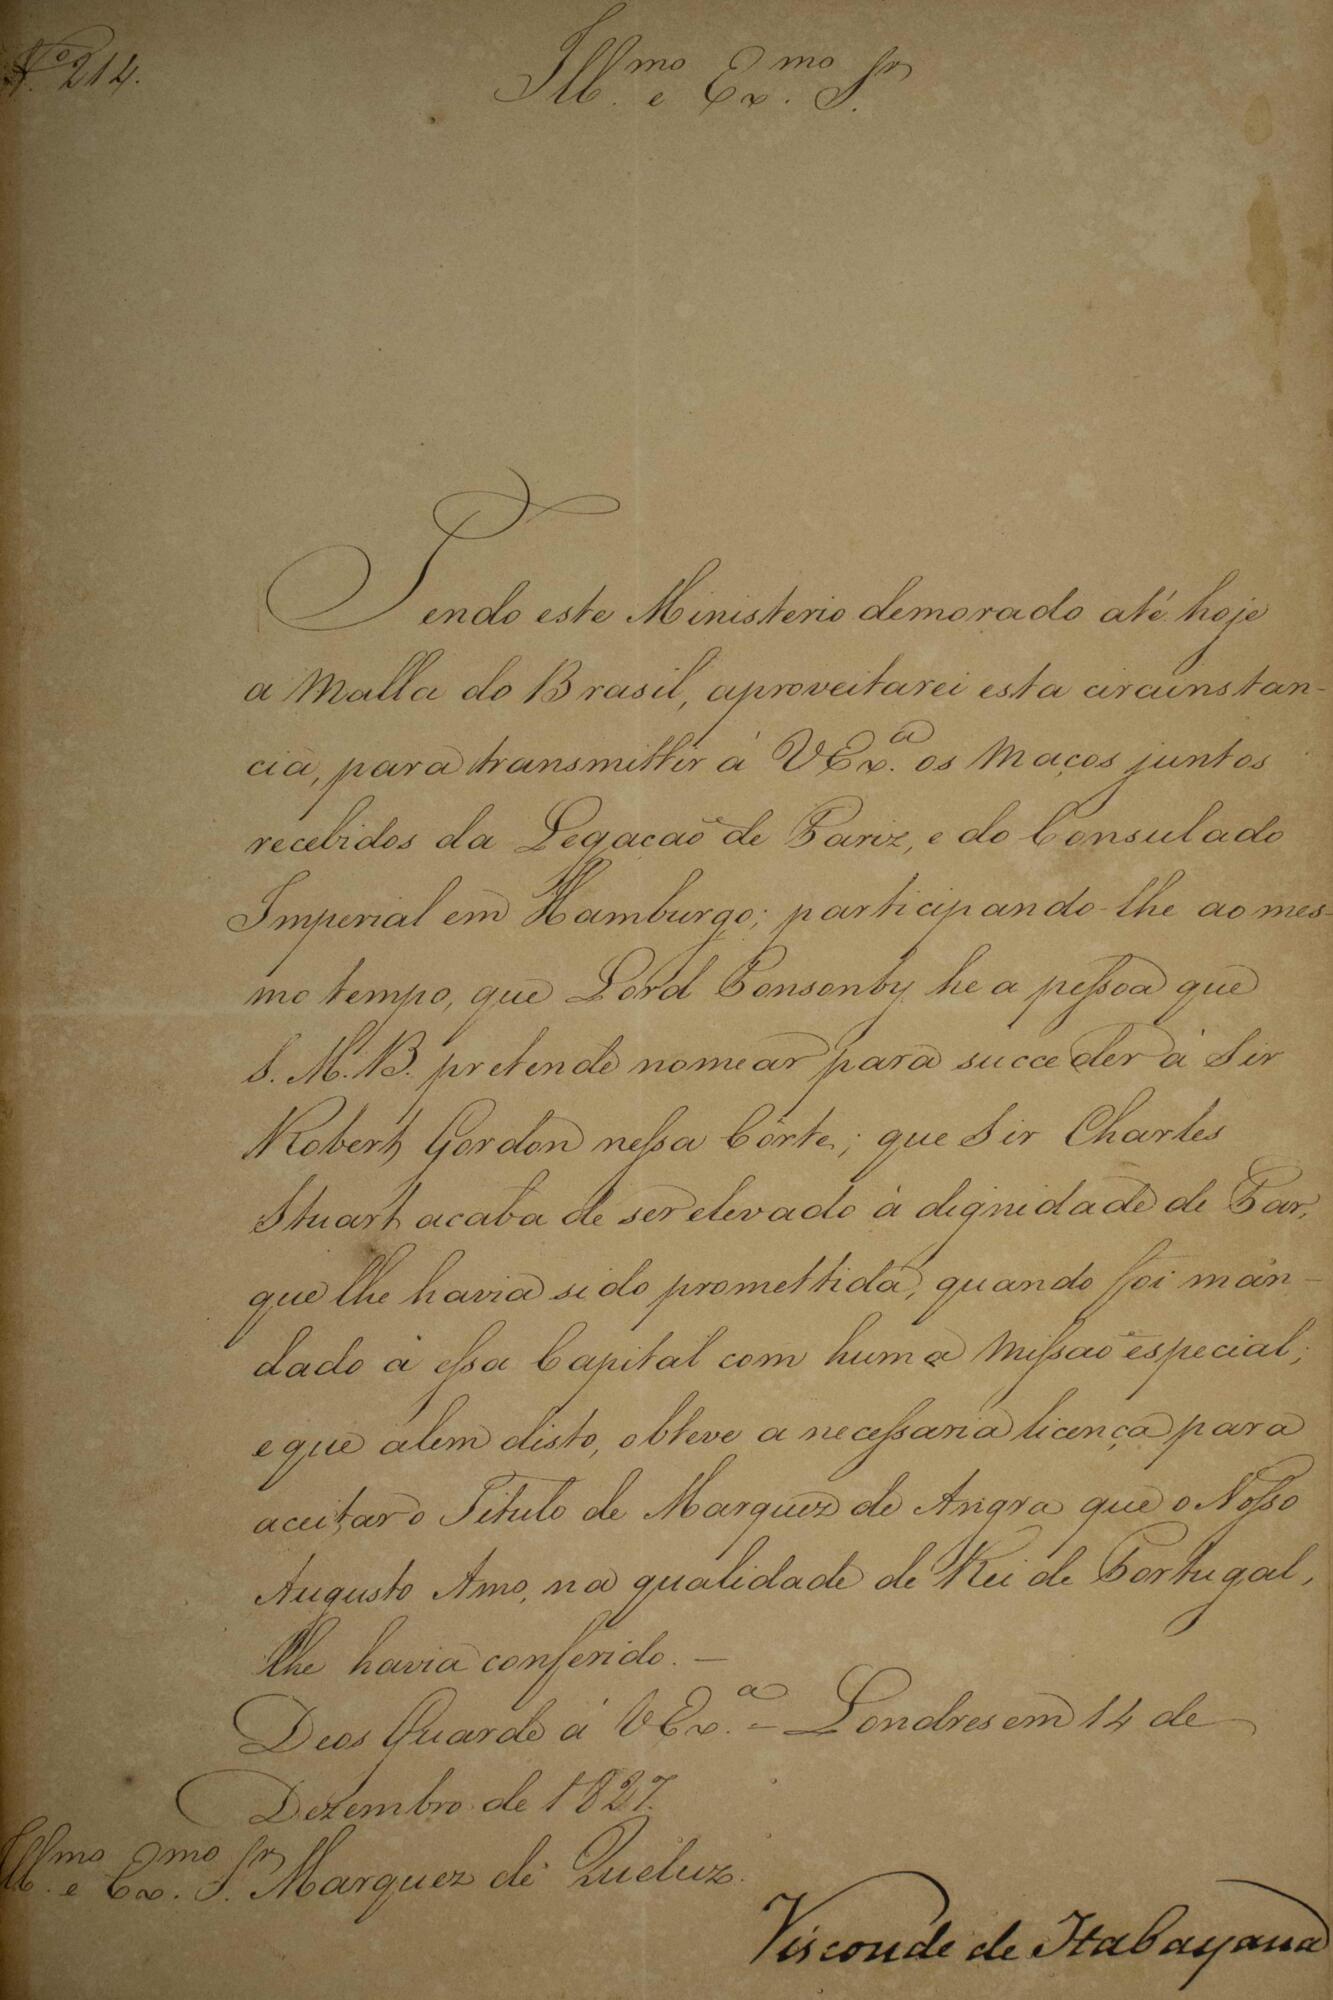 N.º 214.
Ill.mo e Ex.mo S.r
Tendo este Ministerio demorado até hoje
a Malla do Brasil, aproveitarei esta circunstan-
cia, para transmittir á VEx.a os Maços juntos
recebidos da Legação de Pariz, e do Consulado
Imperial em Hamburgo; participando-lhe ao mes-
mo tempo, que Lord Ponsonby he a pessoa que
S. M. B. pretende nomear para succeder á Sir
Robert Gordon nessa Côrte; que Sir Charles
Stuart acaba de ser elevado á dignidade de Par,
que lhe havia sido promettida, quando foi man-
dado á essa Capital com huma Missão especial;
e que alem disto, obteve a necessaria licença para
aceitar o Titulo de Marquez de Angra que o Nosso
Augusto Amo, na qualidade de Rei de Portugal,
lhe havia conferido. —
Deos Guarde á VEx.a — Londres em 14 de
Dezembro de 1827.
Ill.mo e Ex.mo S.r Marquez de Queluz.
Visconde de Itabayana